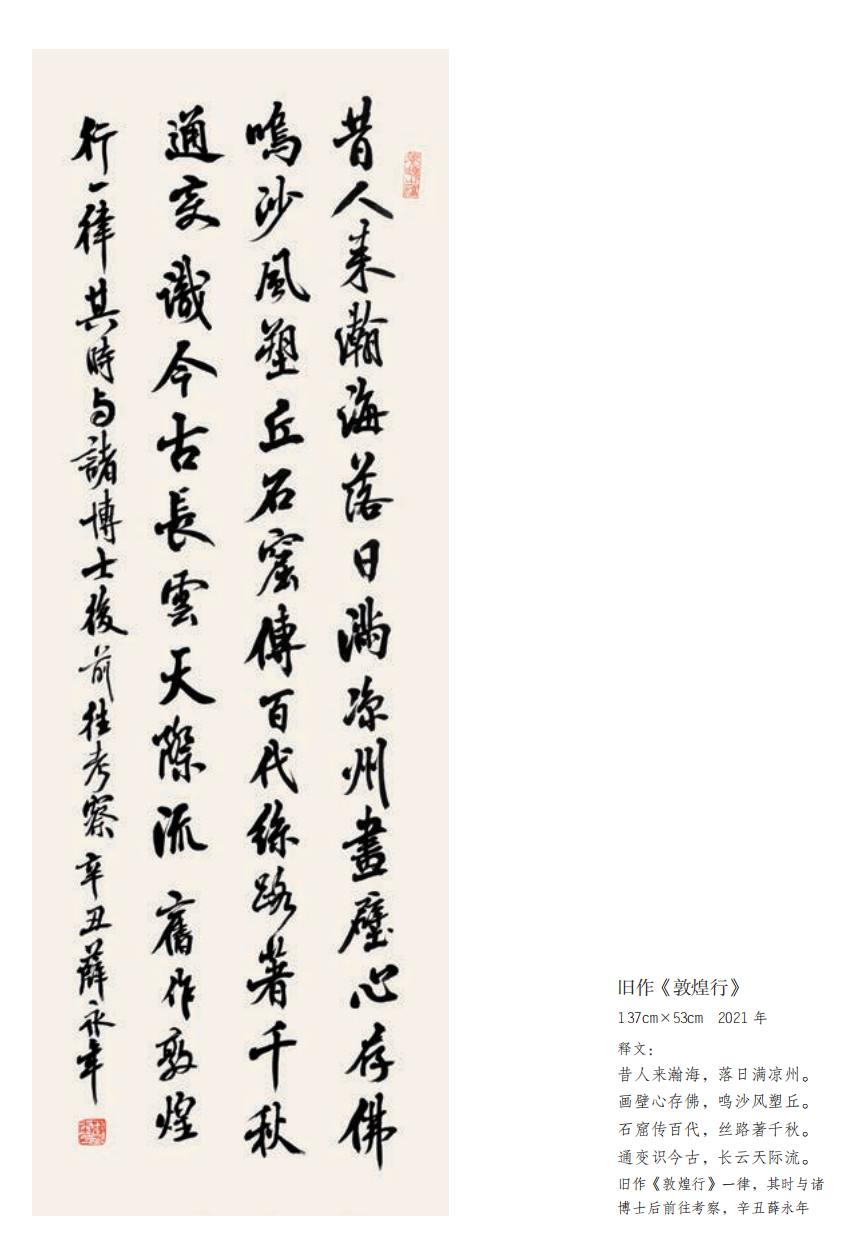 昔人来瀚海落日满凉州畫壁心存佛
鳴沙風塑丘石窟傳百代絲路著千秋
通变識今古長雲天際流舊作敦煌
行一律其時与諸博士後前往考察辛丑薛永年
旧作《敦煌行》
137cm×53cm 2021 年
释文：
昔人来瀚海，落日满凉州。
画壁心存佛，鸣沙风塑丘。
石窟传百代，丝路著千秋。
通变识今古，长云天际流。
旧作《敦煌行》一律，其时与诸
博士后前往考察，辛丑薛永年